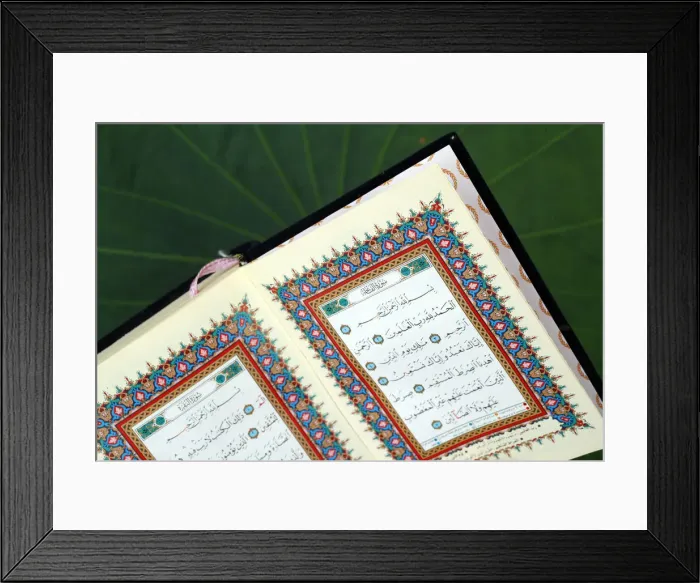 سُورَةُ الْفَاتِحَةِ
بِسْمِ اللَّهِ الرَّحْمَٰنِ الرَّحِيمِ
الْحَمْدُ لِلَّهِ رَبِّ الْعَٰلَمِينَ الرَّحْمَٰنِ
الرَّحِيمِ مَٰلِكِ يَوْمِ الدِّينِ
إِيَّاكَ نَعْبُدُ وَإِيَّاكَ نَسْتَعِينُ
اهْدِنَا الصِّرَٰطَ الْمُسْتَقِيمَ صِرَٰطَ
الَّذِينَ أَنْعَمْتَ عَلَيْهِمْ غَيْرِ الْمَغْضُوبِ
عَلَيْهِمْ وَلَا الضَّالِّينَ
سُورَةُ الْبَقَرَةِ
بِسْمِ اللَّهِ الرَّحْمَٰنِ الرَّحِيمِ
الم ذَٰلِكَ الْكِتَٰبُ لَا رَيْبَ فِيهِ